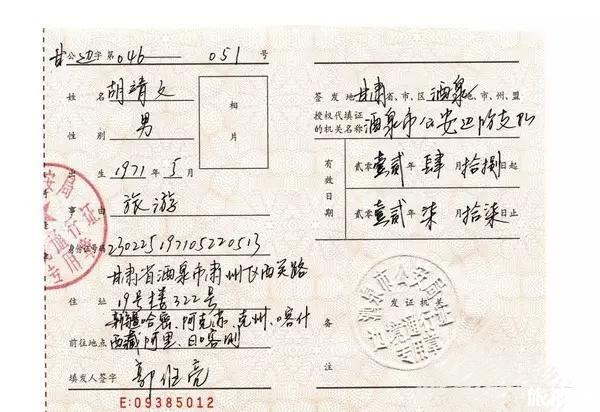 甘公边字第046 051号
姓名 胡靖文
相片
性别 男
出生 1971年5月
事由 旅游
身份证号码 230225197105220513
甘肃省酒泉市肃州区西关路
住址 19号楼322号
新疆哈密、阿克苏、克州、喀什
前往地点 西藏阿里、日喀则
填发人签字
E:09385012
签发地 甘肃省、市、区 酒泉地、市、州、盟
授权代填证
的机关名称 酒泉市公安边防支队
有效日期
贰零壹贰年肆月拾捌日起
贰零壹贰年柒月拾柒日止
酒泉市公安局
发证机关
边境通行证
专用章
备注
公安局
通行证
专用章